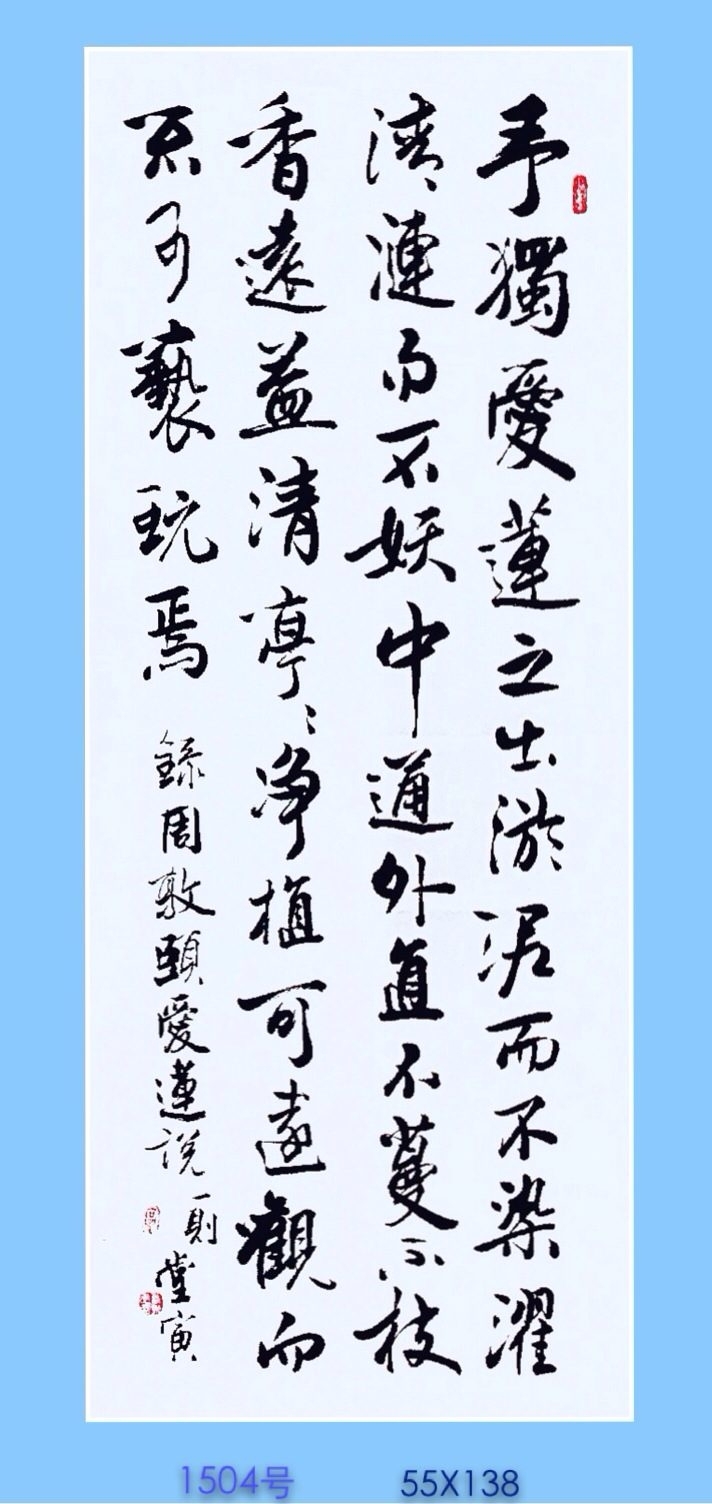 予獨愛蓮之出淤泥而不染濯
清漣而不妖中通外直不蔓不枝
香遠益清亭〻净植可遠觀而
不可褻玩焉
錄周敦頤愛蓮說
一則
堂寅
1504号
55X138